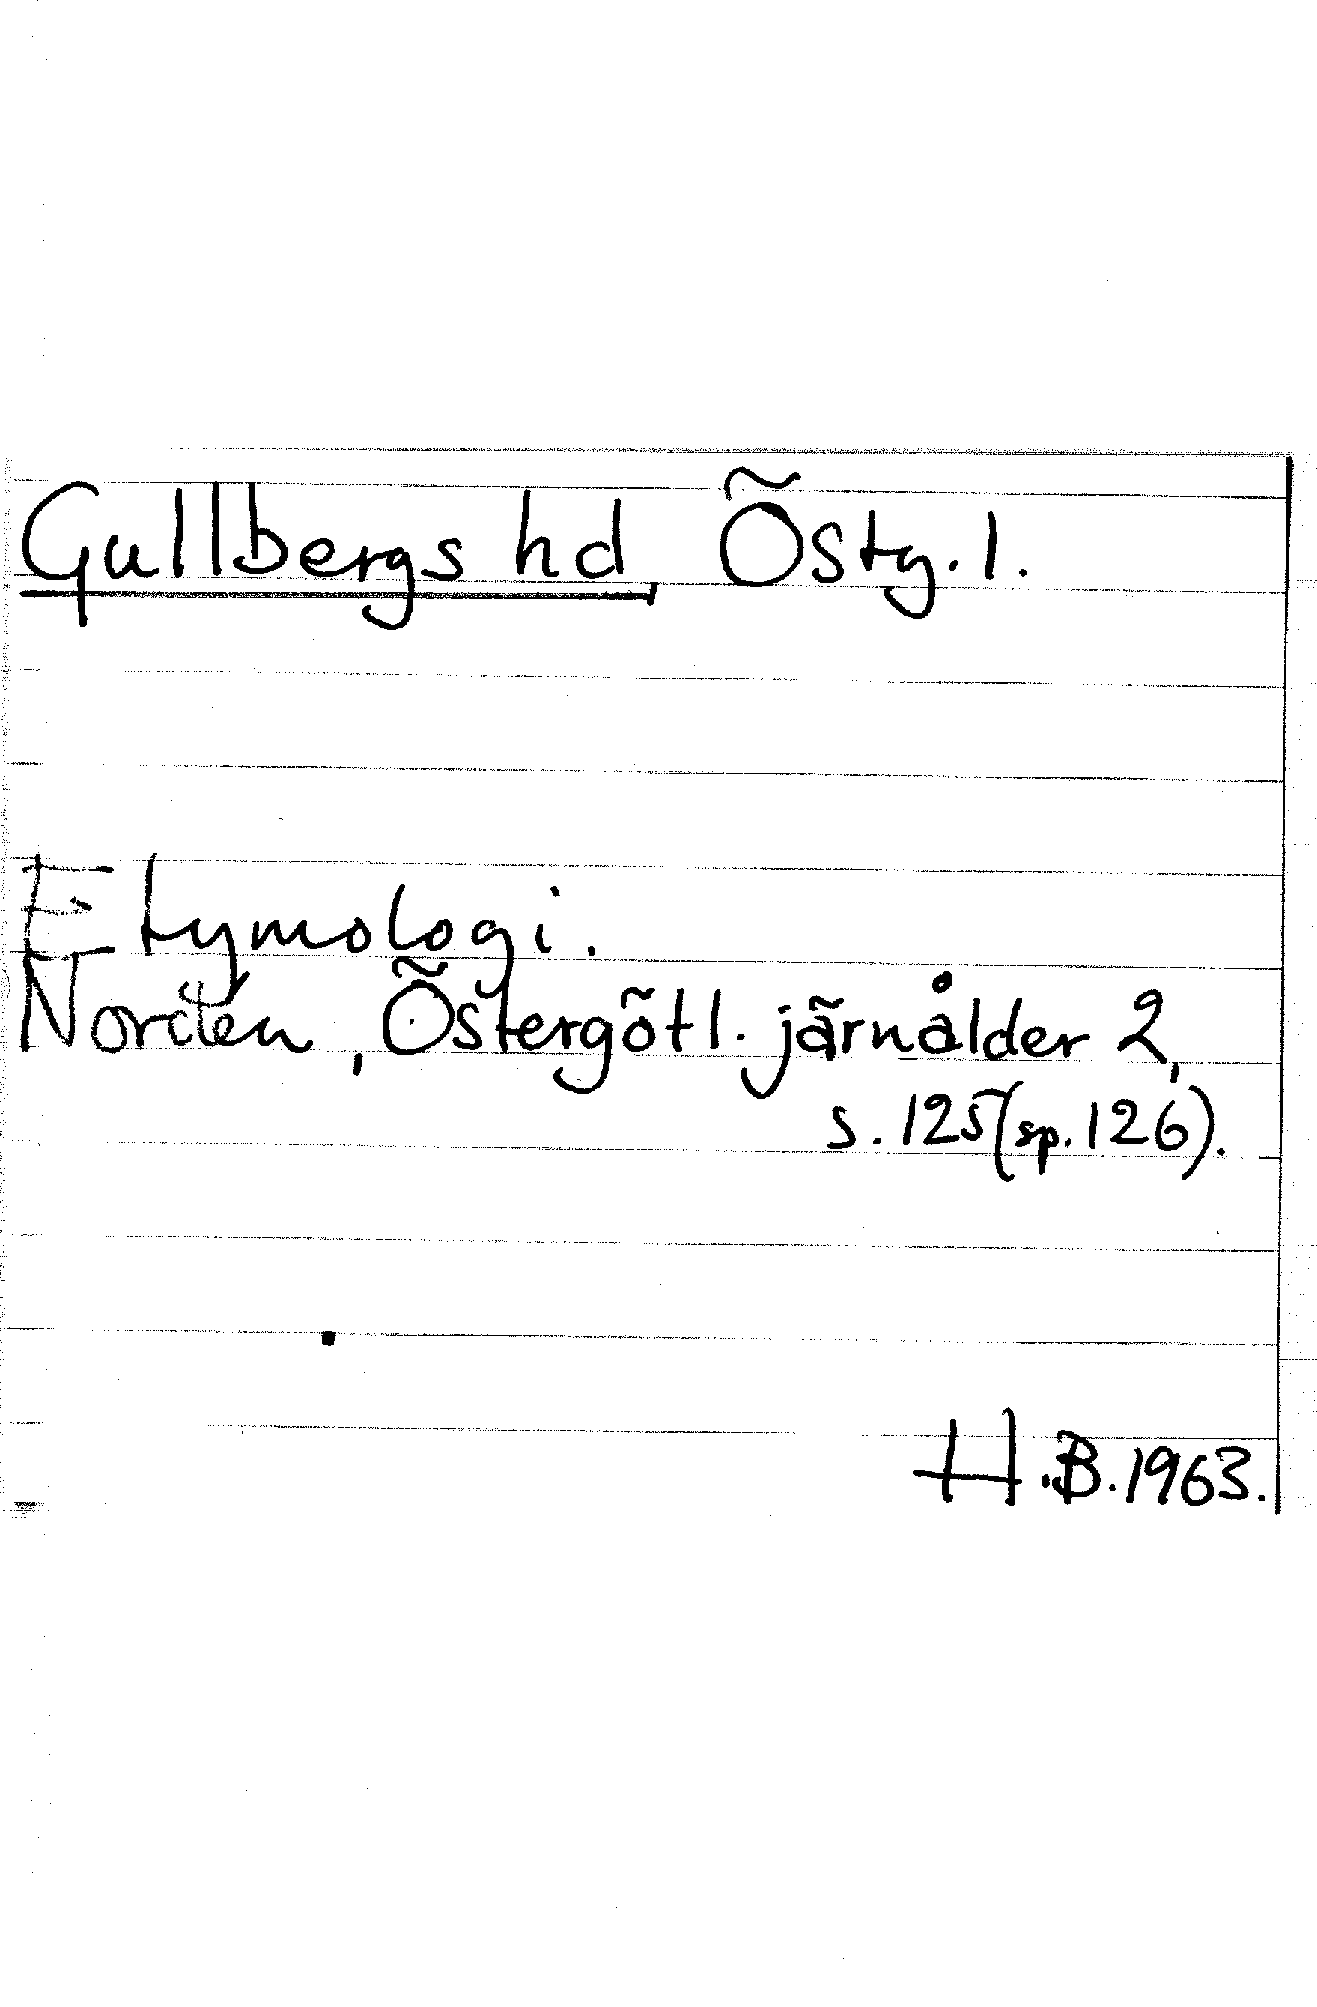 Gullbergs hd, Östg. l.
Etymologi.
Norden, Östergötl. järnålder 2,
s. 125 (sp. 126).
H.B. 1963.